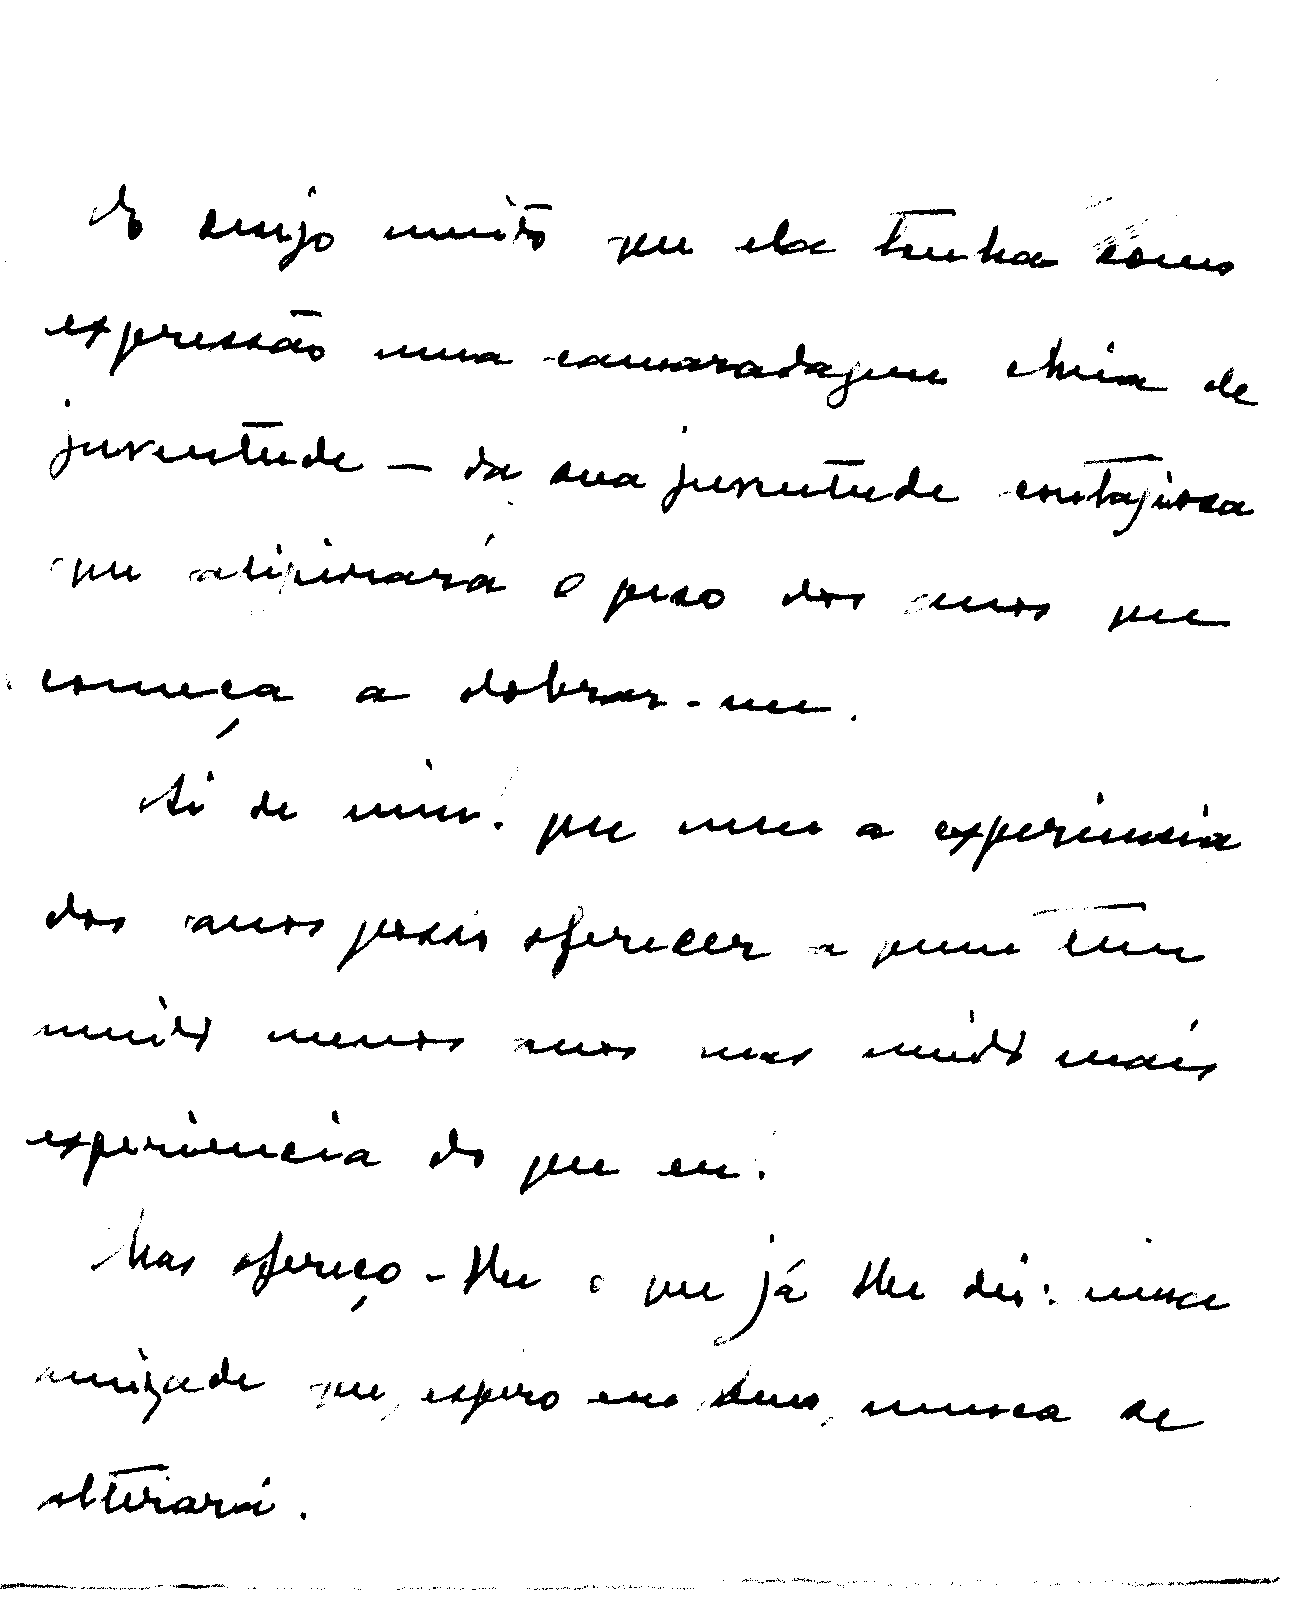 do amigo muito que ela tenha como
expressão uma camaradagem cheia de
juventude — da sua juventude contagiosa
que aligeirará o peso dos anos que
começa a dobrar-me.
Ai de mim. que nem a experiencia
dos anos posso oferecer a quem tem
muito menos anos mas muito mais
experiencia do que eu.
Mas ofereço-lhe o que já lhe dei: uma
amizade que, espero em Deus, nunca se
alterará.